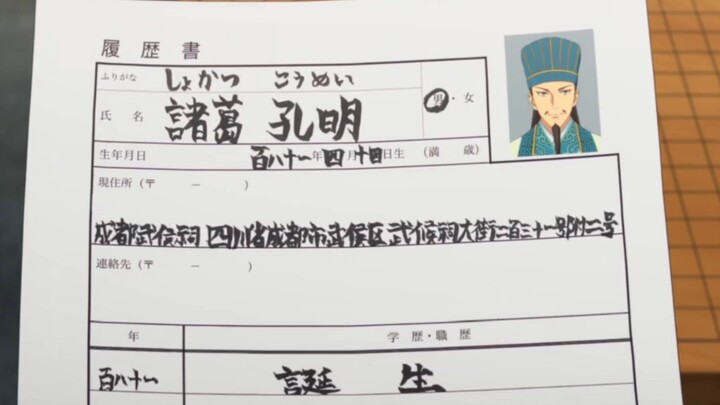 履歴書
ふりがな しょかつ こうめい
氏名 諸葛 孔明 男・女
生年月日 百八十一年四月十日生 (満 歳)
現住所 (〒 － )
成都武侯祠 四川省成都市武侯区武候祠大街二百三十一号附二号
連絡先 (〒 － )
年 学歴・職歴
百八十一 誕生